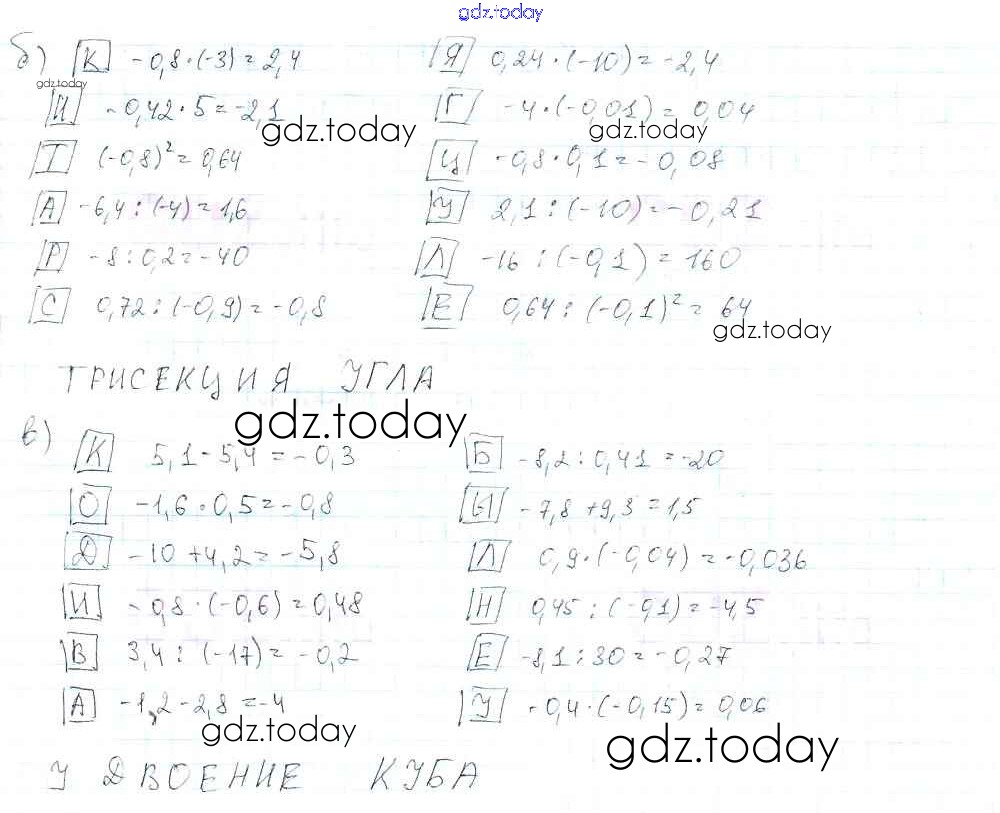 gdz.today
б) К -0,8·(-3)=2,4 Я 0,24·(-10)=-2,4
gdz.today
И -0,42·5=-2,1 Г -4·(-0,01)=0,04
gdz.today gdz.today
Т (-0,8)²=0,64 Ц -0,8·0,1=-0,08
А -6,4:(-4)=1,6 У 2,1:(-10)=-0,21
Р -8:0,2=-40 Л -16:(-0,1)=160
С 0,72:(-0,9)=-0,8 Е 0,64:(-0,1)²=64
gdz.today
ТРИСЕКЦИЯ УГЛА
gdz.today
в) К 5,1-5,4=-0,3 Б -8,2:0,41=-20
О -1,6·0,5=-0,8 Ы -7,8+9,3=1,5
Д -10+4,2=-5,8 Л 0,9·(-0,04)=-0,036
И -0,8·(-0,6)=0,48 Н 0,45:(-0,1)=-4,5
В 3,4:(-17)=-0,2 Е -8,1:30=-0,27
А -1,2-2,8=-4 У -0,4·(-0,15)=0,06
gdz.today gdz.today
УДВОЕНИЕ КУБА